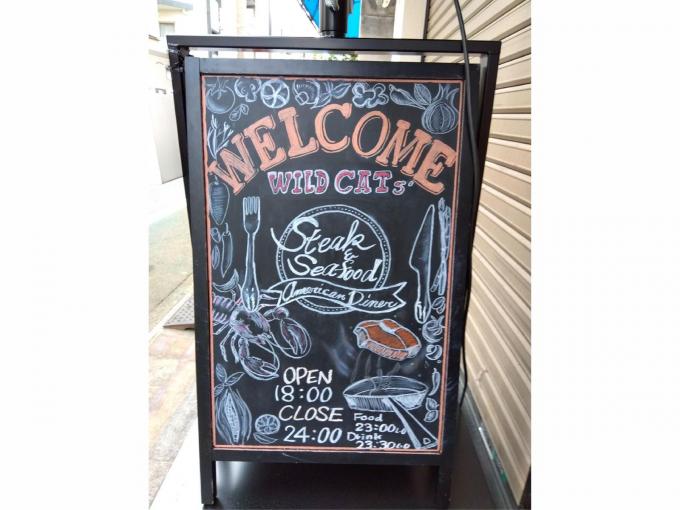 WELCOME
WILD CATs'
Steak
&
Seafood
American Diner
OPEN
18:00
CLOSE
24:00
Food
23:00Lo
Drink
23:30Lo